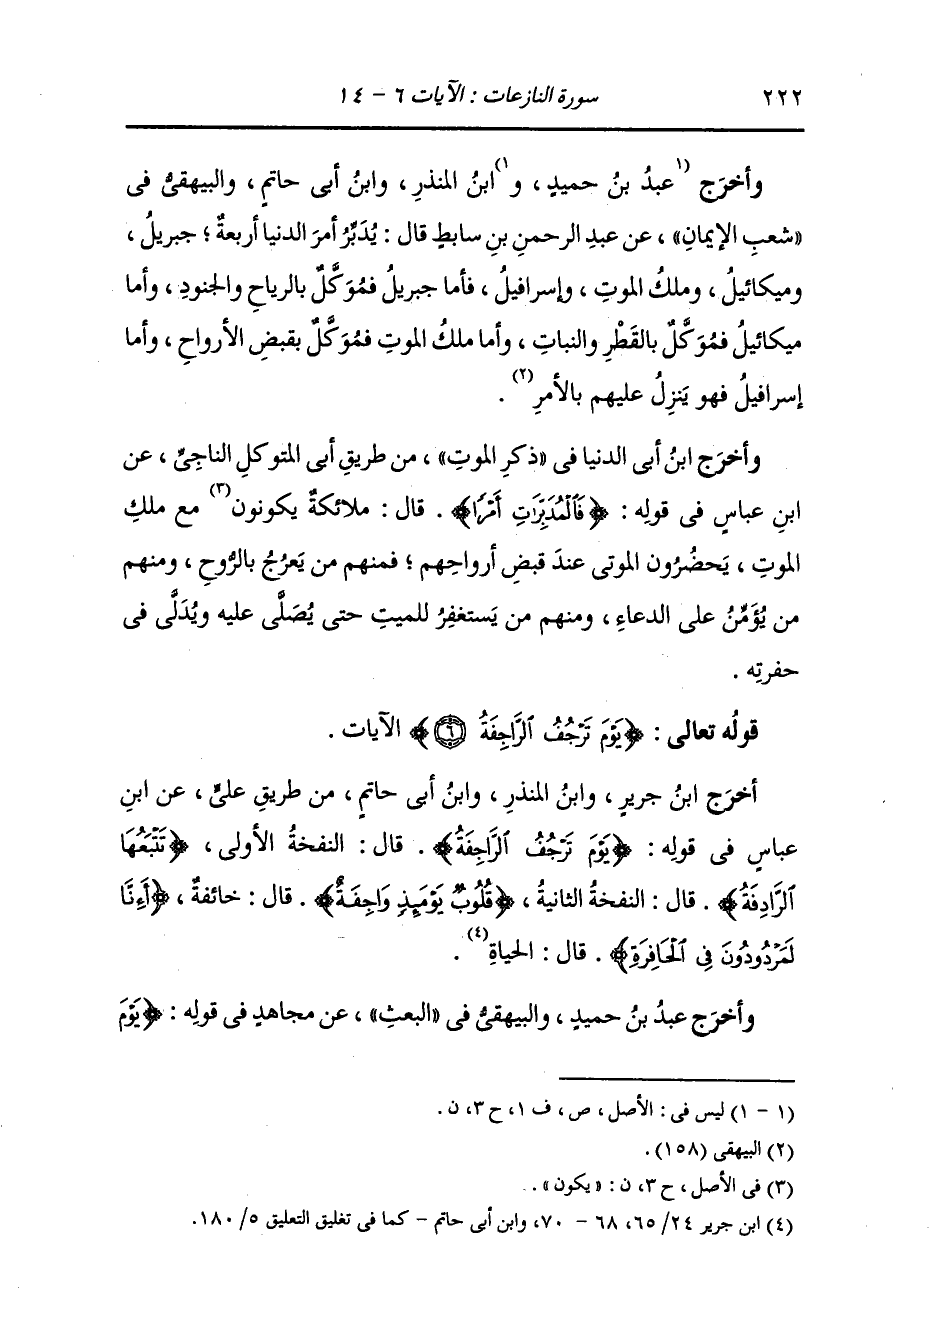 ٢٢٢ سورة النازعات : الآيات ٦ – ١٤
وأخرَج (١عبدُ بنُ حميدٍ ، و١)ابنُ المنذرِ ، وابنُ أبى حاتمٍ ، والبيهقىُّ فى
«شعبِ الإيمانِ» ، عن عبدِ الرحمنِ بنِ سابطٍ قال : يُدَبِّرُ أمرَ الدنيا أربعةٌ ؛ جبريلُ ،
وميكائيلُ ، وملكُ الموتِ ، وإسرافيلُ ، فأما جبريلُ فمُوَكَّلٌ بالرياحِ والجنودِ ، وأما
ميكائيلُ فمُوَكَّلٌ بالقَطْرِ والنباتِ ، وأما ملكُ الموتِ فمُوَكَّلٌ بقبضِ الأرواحِ ، وأما
إسرافيلُ فهو يَنزِلُ عليهم بالأمرِ(٢) .
وأخرَج ابنُ أبى الدنيا فى «ذكرِ الموتِ» ، من طريقِ أبى المتوكلِ الناجىِّ ، عن
ابنِ عباسٍ فى قولِه : ﴿فَٱلْمُدَبِّرَٰتِ أَمْرًا﴾ . قال : ملائكةٌ يكونون(٣) مع ملكِ
الموتِ ، يَحضُرون الموتى عندَ قبضِ أرواحِهم ؛ فمنهم من يَعرُجُ بالرُّوحِ ، ومنهم
من يُؤَمِّنُ على الدعاءِ ، ومنهم من يَستغفِرُ للميتِ حتى يُصَلَّى عليه ويُدَلَّى فى
حفرتِه .
قولُه تعالى : ﴿يَوْمَ تَرْجُفُ ٱلرَّاجِفَةُ ٦﴾ الآيات .
أخرَج ابنُ جريرٍ ، وابنُ المنذرِ ، وابنُ أبى حاتمٍ ، من طريقِ علىٍّ ، عن ابنِ
عباسٍ فى قولِه : ﴿يَوْمَ تَرْجُفُ ٱلرَّاجِفَةُ﴾ . قال : النفخةُ الأولى ، ﴿تَتْبَعُهَا
ٱلرَّادِفَةُ﴾ . قال : النفخةُ الثانيةُ ، ﴿قُلُوبٌ يَوْمَئِذٍ وَاجِفَةٌ﴾ . قال : خائفةٌ ، ﴿أَءِنَّا
لَمَرْدُودُونَ فِى ٱلْحَافِرَةِ﴾ . قال : الحياةِ(٤) .
وأخرَج عبدُ بنُ حميدٍ ، والبيهقىُّ فى «البعثِ» ، عن مجاهدٍ فى قولِه : ﴿يَوْمَ
(١ – ١) ليس فى : الأصل ، ص ، ف ١، ح ٣، ن .
(٢) البيهقى (١٥٨).
(٣) فى الأصل ، ح ٣، ن : «يكون» .
(٤) ابن جرير ٢٤/ ٦٥، ٦٨ – ٧٠، وابن أبى حاتم – كما فى تغليق التعليق ٥/ ١٨٠.